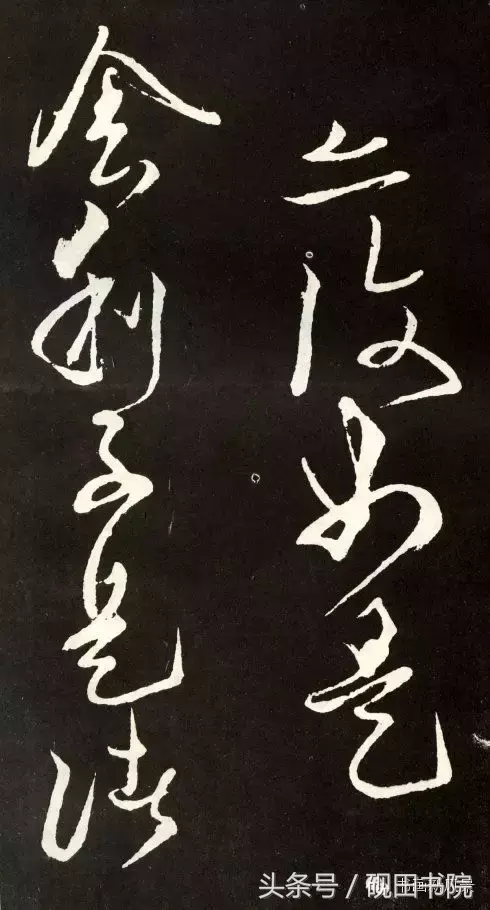 亦復如是
舍利子是諸
头条号／砚田书院